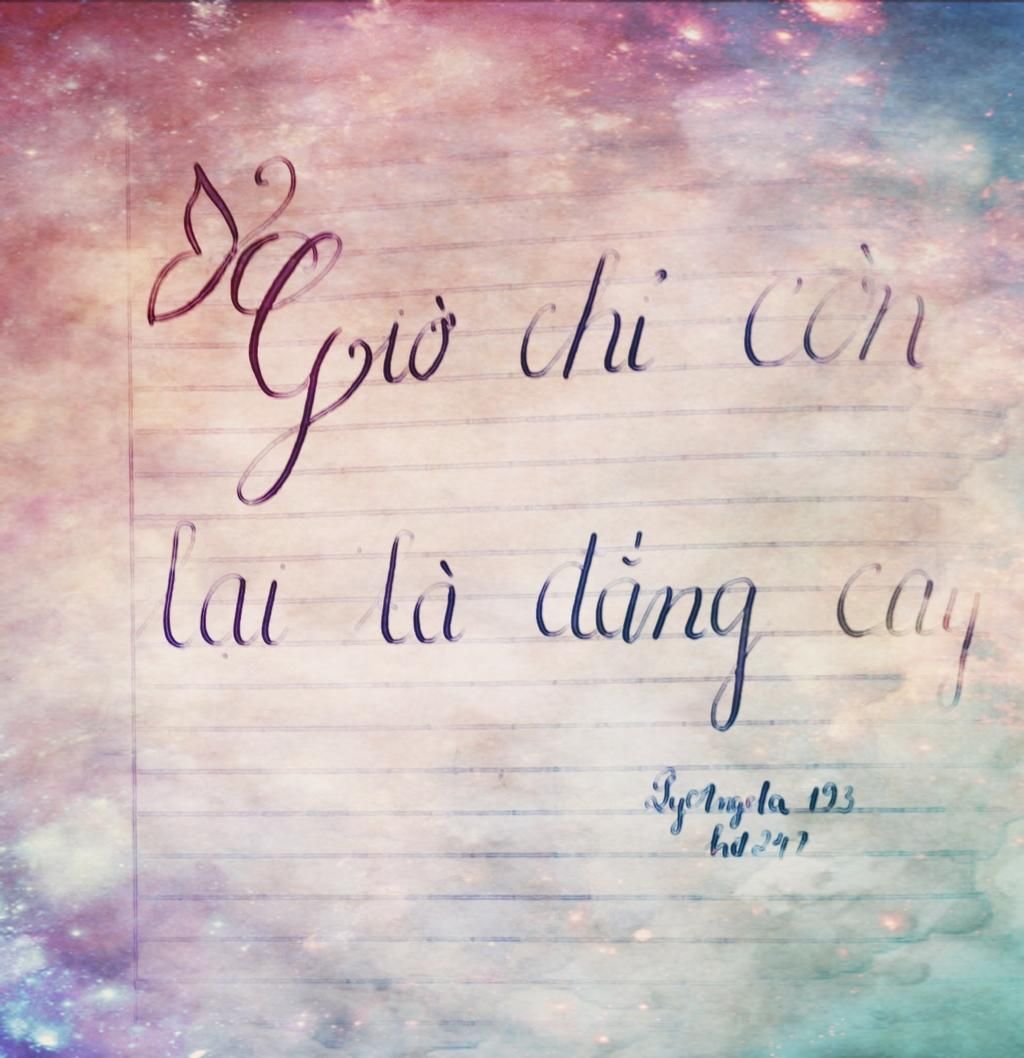 Giờ chỉ còn
lại là dắng cay
PyAngela 193
hd247